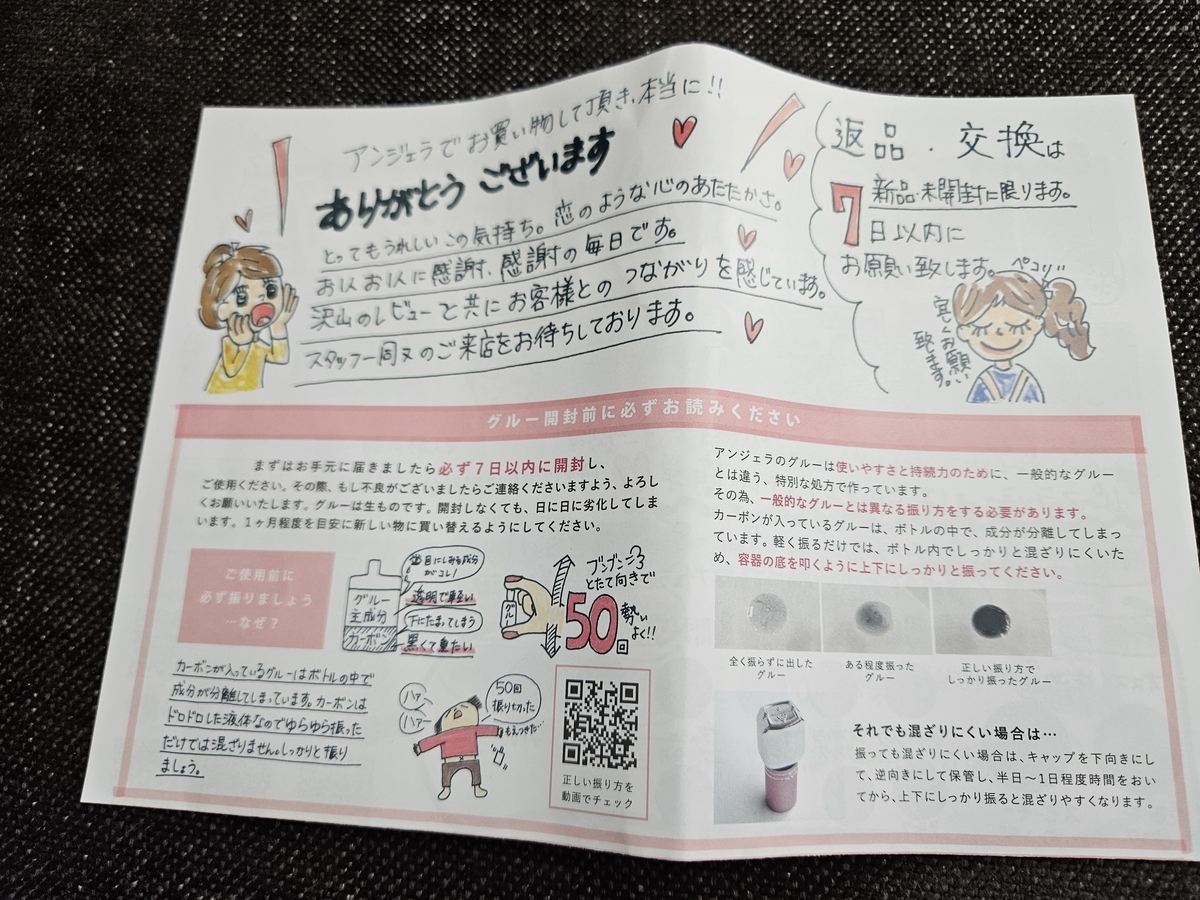 アンジェラでお買い物して頂き、本当に!!
ありがとうございます
とってもうれしいこの気持ち。恋のような心のあたたかさ。
お1人お1人に感謝、感謝の毎日です。
沢山のレビューと共にお客様とのつながりを感じています。
スタッフ一同又のご来店をお待ちしております。
返品・交換は
新品・未開封に限ります。
7日以内に
お願い致します。
ペコリ!!
宜しくお願い
致します。
グルー開封前に必ずお読みください
まずはお手元に届きましたら必ず7日以内に開封し、
ご使用ください。その際、もし不良がございましたらご連絡くださいますよう、よろし
くお願いいたします。グルーは生ものです。開封しなくても、日に日に劣化してしま
います。1ヶ月程度を目安に新しい物に買い替えるようにしてください。
ご使用前に
必ず振りましょう
…なぜ?
グルー
主成分
カーボン
目にしみる成分
がコレ!
透明で軽い
下にたまってしまう
黒くて重たい
グルー
ブンブンブン
とたて向きで
50回
勢い
よく!!
カーボンが入っているグルーはボトルの中で
成分が分離してしまっています。カーボンは
ドロドロした液体なのでゆらゆら振った
だけでは混ざりません。しっかりと振り
ましょう。
ハァー
ハァー
50回
振り切った
もえつきた…
正しい振り方を
動画でチェック
アンジェラのグルーは使いやすさと持続力のために、一般的なグルー
とは違う、特別な処方で作っています。
その為、一般的なグルーとは異なる振り方をする必要があります。
カーボンが入っているグルーは、ボトルの中で、成分が分離してしまっ
ています。軽く振るだけでは、ボトル内でしっかりと混ざりにくいた
め、容器の底を叩くように上下にしっかりと振ってください。
全く振らずに出した
グルー
ある程度振った
グルー
正しい振り方で
しっかり振ったグルー
それでも混ざりにくい場合は…
振っても混ざりにくい場合は、キャップを下向きにし
て、逆向きにして保管し、半日～1日程度時間をおい
てから、上下にしっかり振ると混ざりやすくなります。